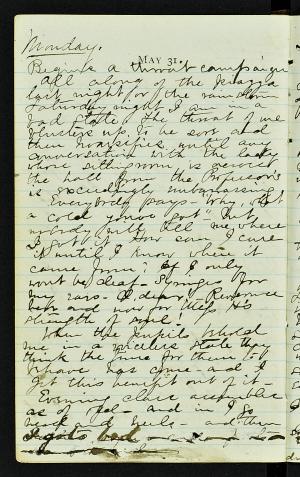 Monday.
MAY 31.
Begins a throat campaign
all along of the piazza
last night for the
Saturday night I am in a
sad state. The throat of me
blusters up, to be sore and
then hoarsifies, until any
conversation with the lady
whose sitting room is across
the hall from the Professor's
is exceedingly embarrassing!
Everybody says - Why, what
a cold you've got" but
nobody will tell me where
I got it. How can I cure
it until I know where it
came from? If I only
wont be deaf - Syringe for
my ears - O dear,
and now for
strength of
When the pupils behold
me in a state they
think the time for them to
behave has come and I
get this benefit out of it -
Evening class assembles
as of yel - and in I go
neck and heels - and then
to bed